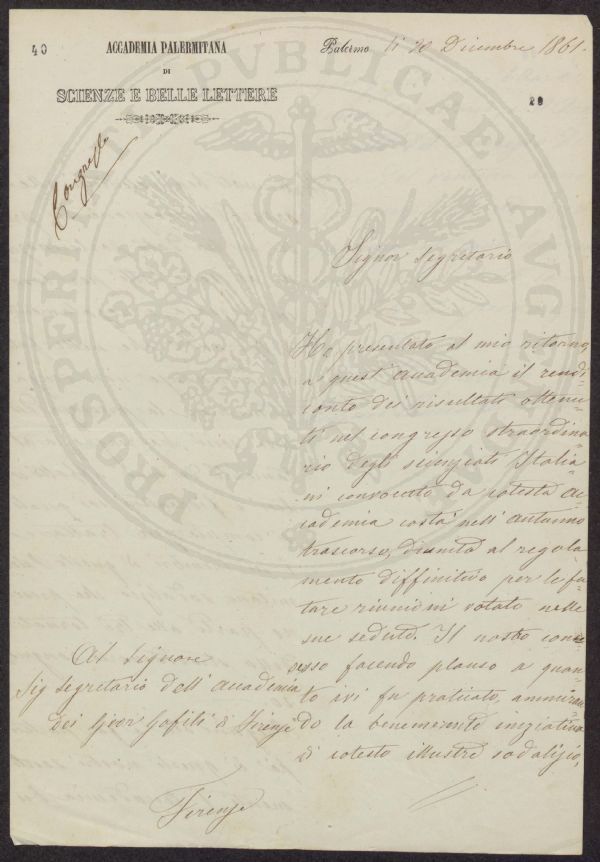 40
ACCADEMIA PALERMITANA
DI
SCIENZE E BELLE LETTERE
Palermo li 20 Dicembre 1861.
20
Signor Segretario
Ho presentato al mio ritorno,
a quest'Accademia il rendi-
conto dei risultati ottenu-
ti nel congresso straordina-
rio degli scienziati Italia-
ni convocato da cotesta Ac-
cademia costà nell'Autunno
trascorso, diunità al regola-
mento diffinitivo per le fu-
ture riunioni votato nelle
sue sedute. Il nostro conc-
esso facendo plauso a quan-
to ivi fu praticato, ammiran-
do la benemerante iniziativa
di cotesto illustre sodalizio,
Al Signore
Sig Segretario dell'Accademia
dei Geor Gofili di Firenze
Firenze
PROSPERITATI PUBLICAE AUGENDAE